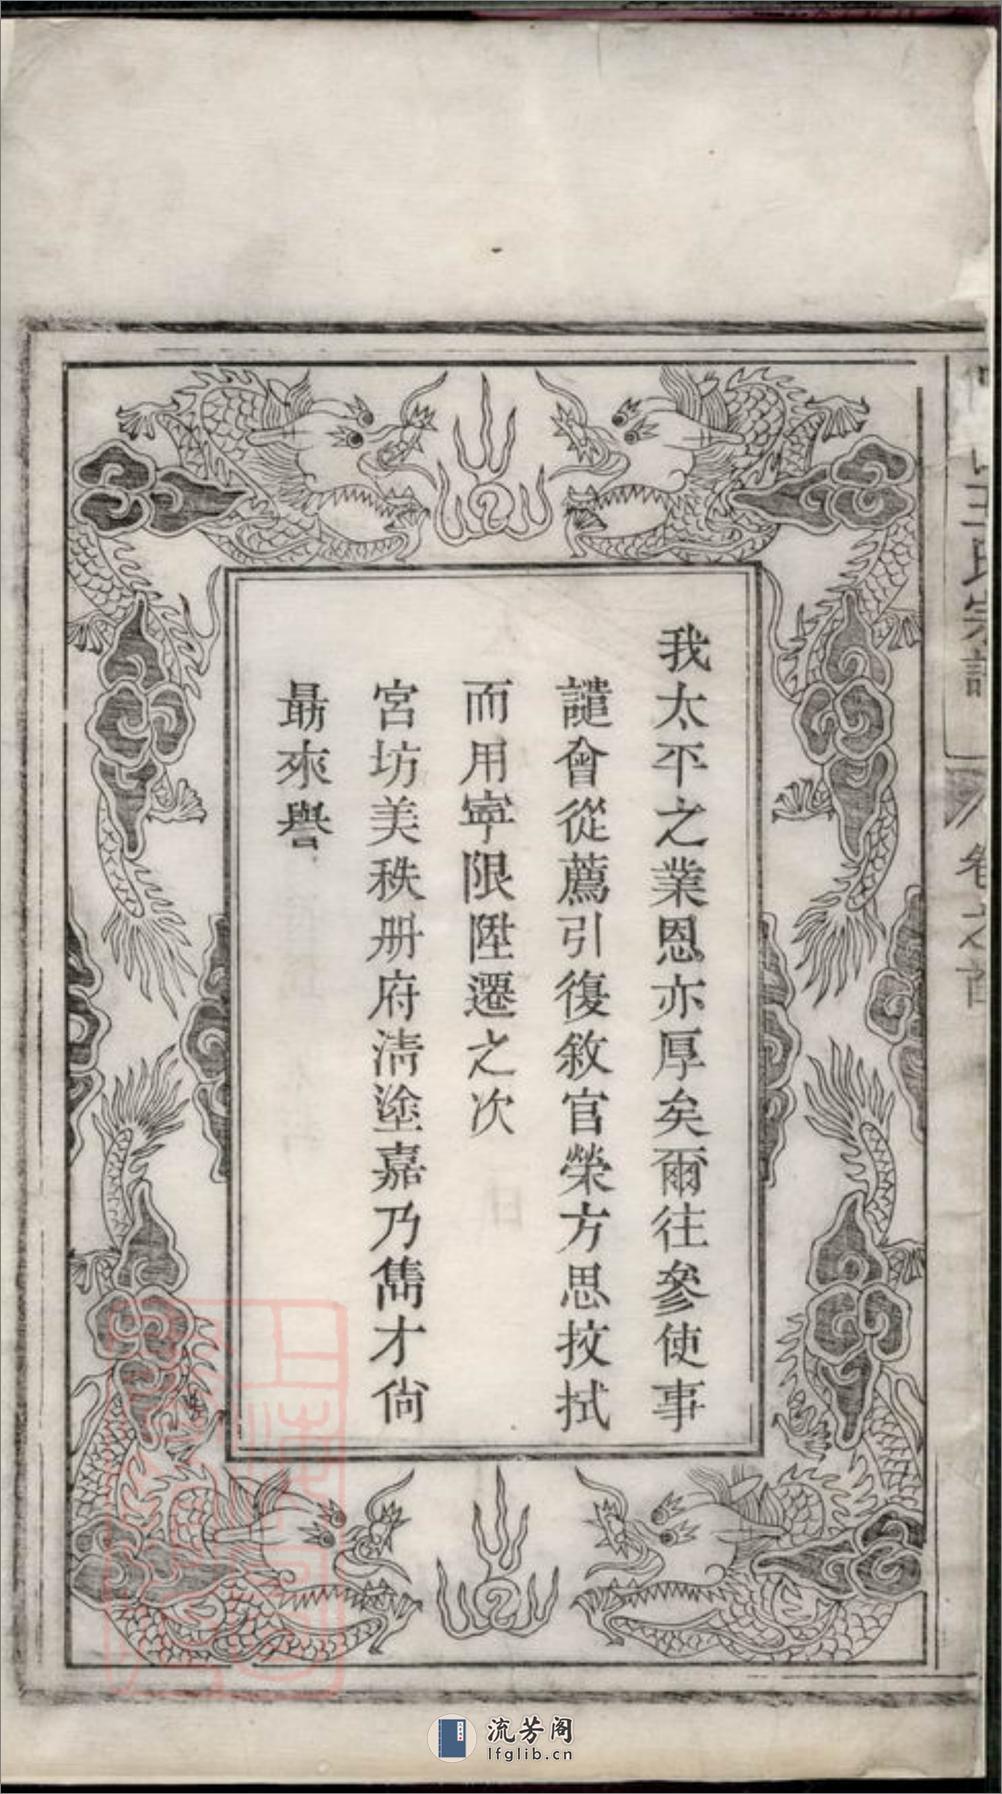 我太平之業恩亦厚矣爾往參使事
譴會從薦引復敘官榮方思抆拭
而用寧限陞遷之次
宮坊美秩冊府淸塗嘉乃雋才尙
最來譽
王氏宗譜
卷之首
流芳阁
lfglib.cn